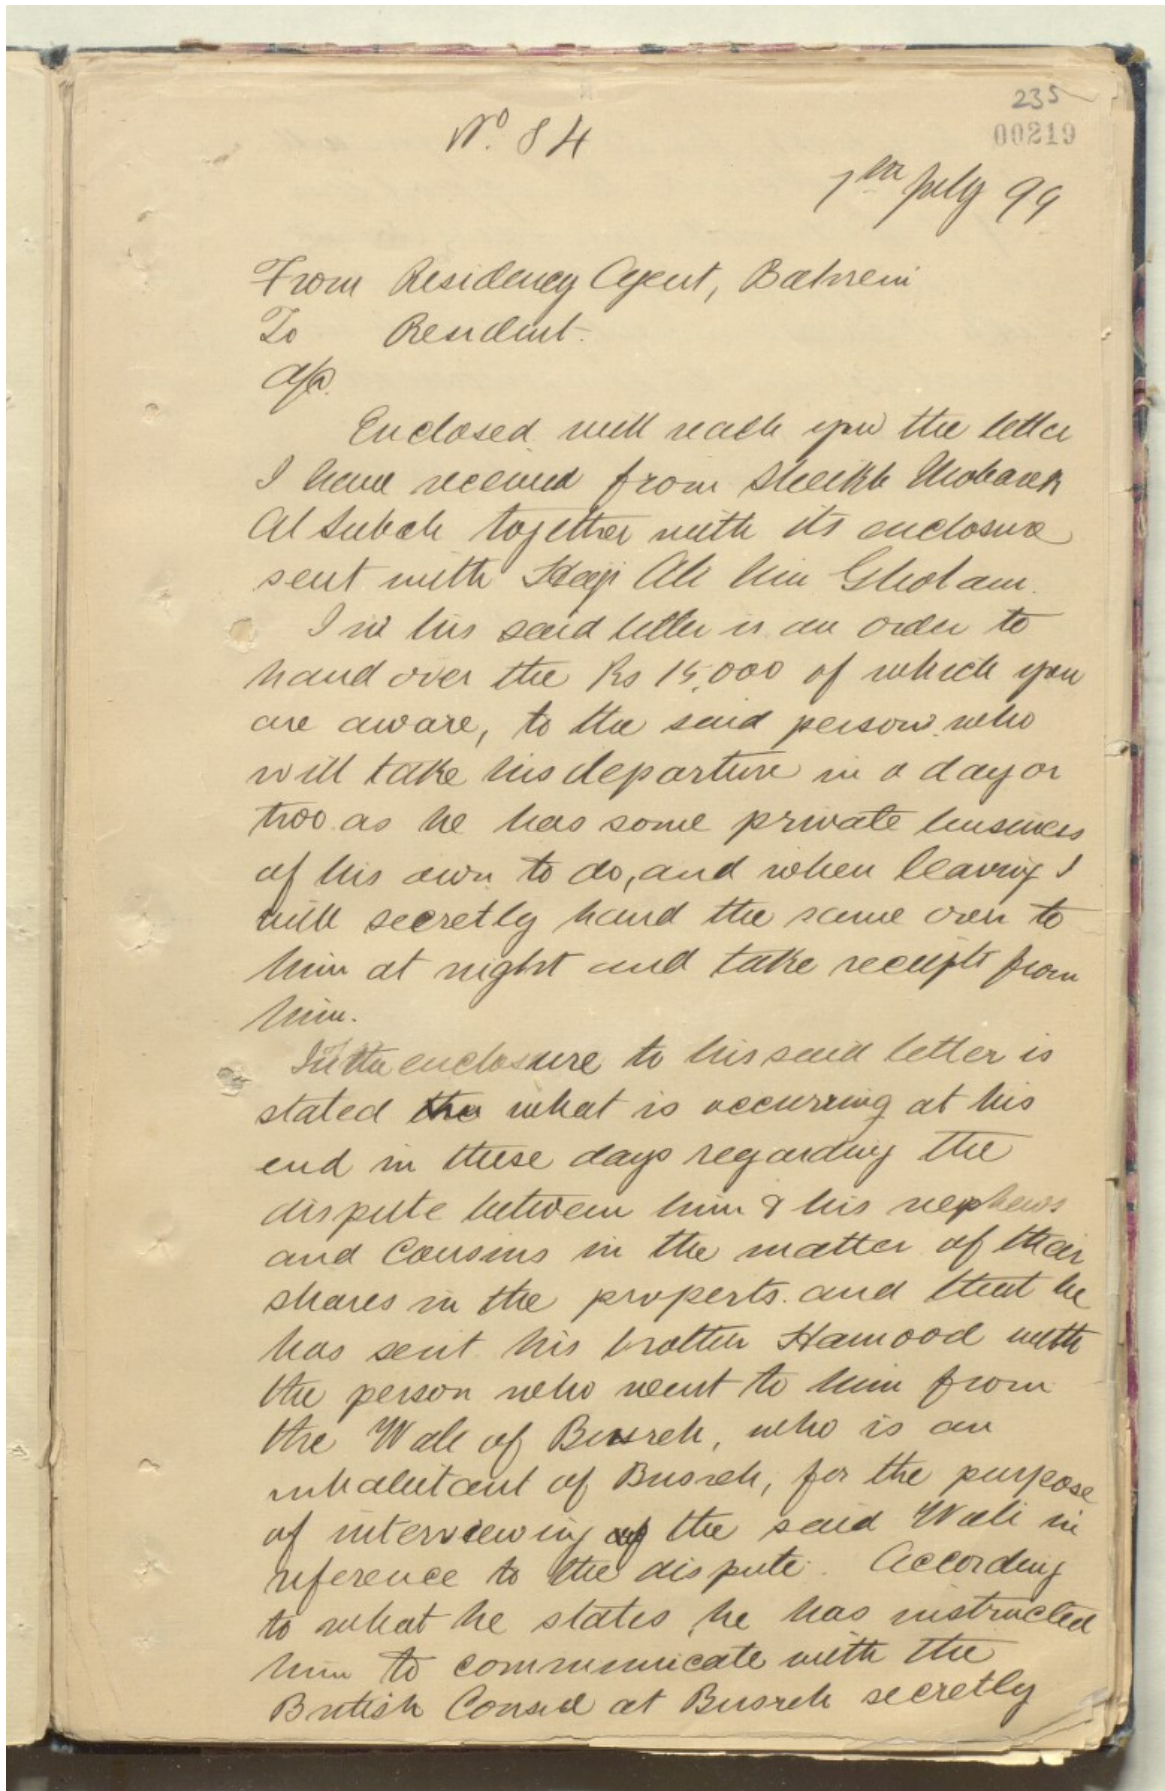 235
00219
No. 84
7th July 99
From Residency Agent, Bahrein
To Resident.
A/C.
Enclosed will reach you the letter
I have received from Sheikh Mobarek
Al Subah together with its enclosure
sent with Haji Ali bin Gholam.
In his said letter is an order to
hand over the Rs 15,000 of which you
are aware, to the said person who
will take his departure in a day or
two as he has some private business
of his own to do, and when leaving I
will secretly hand the same over to
him at night and take receipts from
him.
In the enclosure to his said letter is
stated the what is occurring at his
end in these days regarding the
dispute between him & his nephews
and Cousins in the matter of their
shares in the property. and that he
has sent his brother Hamood with
the person who went to him from
the Wali of Busreh, who is an
inhabitant of Busreh, for the purpose
of interviewing of the said Wali in
reference to the dispute. According
to what he states he has instructed
him to communicate with the
British Consul at Busreh secretly